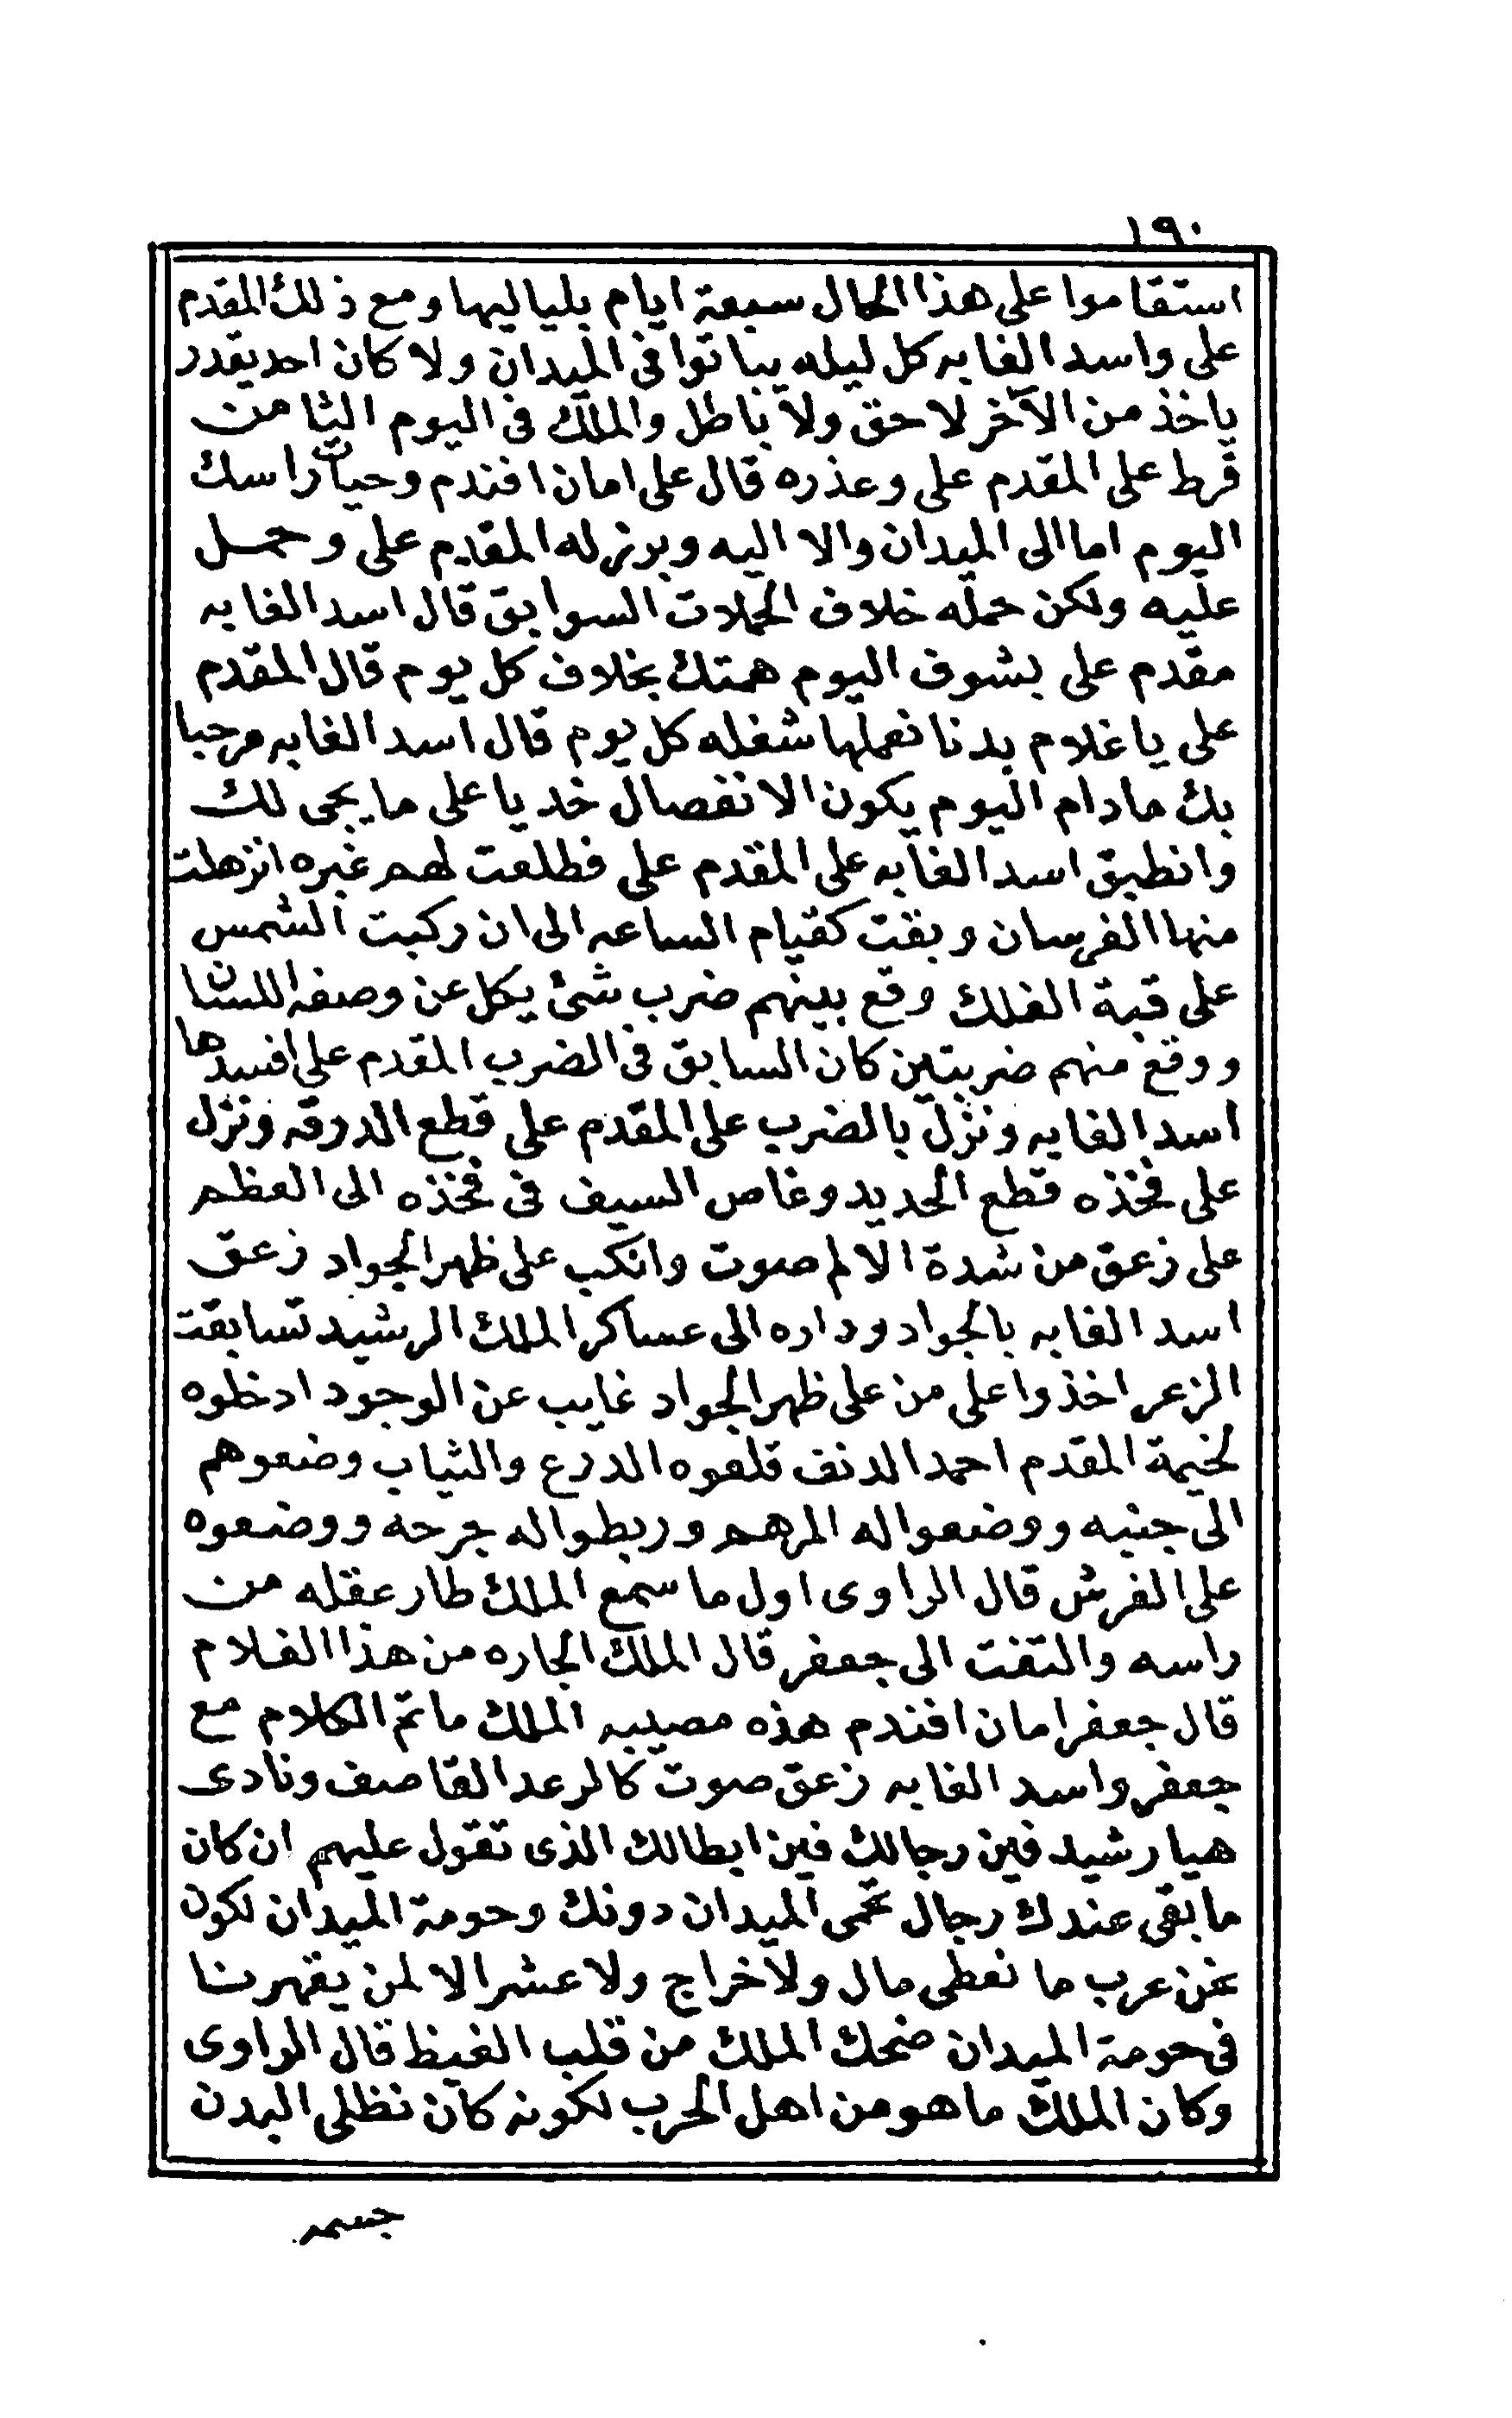 ١٩٠
استقاموا على هذا الحال سبعة ايام بلياليها ومع ذلك المقدم
على واسد الغابه كل ليله يباتوا فى الميدان ولا كان احد يقدر
ياخذ من الآخر لا حق ولا باطل والملك فى اليوم الثامن
قرط على المقدم على وعذره قال على امان افندم وحيات راسك
اليوم اما الى الميدان والا اليه وبرز له المقدم على وحمل
عليه ولكن حمله خلاف الحملات السوابق قال اسد الغابه
مقدم على بشوف اليوم همتك بخلاف كل يوم قال المقدم
على يا غلام بدنا نعملها شغله كل يوم قال اسد الغابه مرحبا
بك مادام اليوم يكون الانفصال خد يا على ما يجى لك
وانطبق اسد الغابه على المقدم على فطلعت لهم غبره انزهلت
منها الفرسان وبقت كقيام الساعه الى ان ركبت الشمس
على قبة الفلك وقع بينهم ضرب شئ يكل عن وصفه اللسان
ووقع منهم ضربتين كان السابق فى الضرب المقدم على افسدها
اسد الغابه ونزل بالضرب على المقدم على قطع الدرقه ونزل
على فخذه قطع الحديد وغاص السيف فى فخذه الى العظم
على زعق من شدة الالم صوت وانكب على ظهر الجواد زعق
اسد الغابه بالجواد وداره الى عساكر الملك الرشيد تسابقت
الزعر اخذوا على من على ظهر الجواد غايب عن الوجود ادخلوه
لخيمة المقدم احمد الدنف قلعوه الدرع والثياب وضعوهم
الى جنبه ووضعوا له المرهم وربطوا له جرحه ووضعوه
على الفرش قال الراوى اول ما سمع الملك طار عقله من
راسه والتفت الى جعفر قال الملك الجاره من هذا الغلام
قال جعفر امان افندم هذه مصيبه الملك ماتم الكلام مع
جعفر واسد الغابه زعق صوت كالرعد القاصف ونادى
هيا رشيد فين رجالك فين ابطالك الذى تقول عليهم ان كان
ما بقى عندك رجال تحمى الميدان دونك وحومة الميدان لكون
نحن عرب ما نعطى مال ولا خراج ولا عشر الا لمن يقهرنا
فى حومة الميدان ضحك الملك من قلب الغيظ قال الراوى
وكان الملك ما هو من اهل الحرب لكونه كان نظلى البدن
جسمه